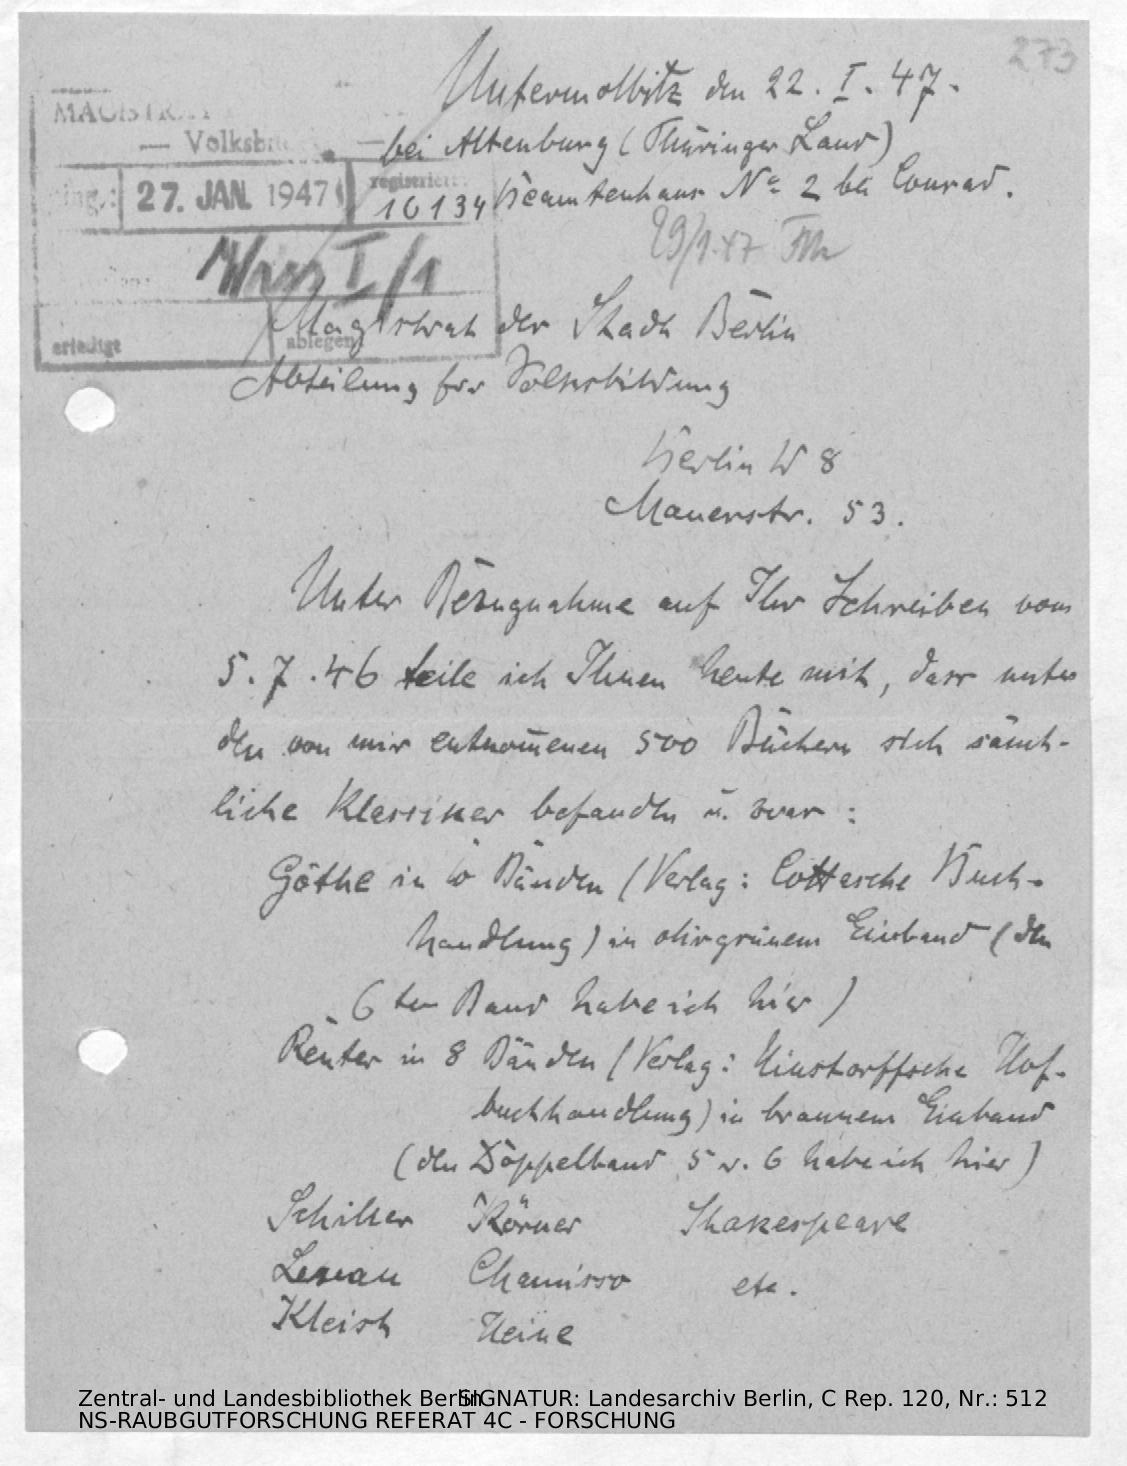 273
Untermolbitz den 22. I. 47.
bei Altenburg (Thüringer Land)
Beamtenhaus Nº 2 bei Conrad.
MAGISTRAT
— Volksb
27. JAN. 1947
registriert:
10134
29/1.47
I/1
erledigt
ablegen
Magistrat der Stadt Berlin
Abteilung für Volksbildung
Berlin W 8
Mauerstr. 53.
Unter Bezugnahme auf Ihr Schreiben vom
5.7.46 teile ich Ihnen heute mit, dass unter
den von mir entnom̄enen 500 Büchern sich sämt-
liche Klassiker befanden u. zwar:
Göthe in 10 Bänden (Verlag: Cottasche Buch-
handlung) in olivgrünem Einband (den
6ten Band habe ich hier)
Reuter in 8 Bänden (Verlag: Hinstorffsche Hof-
buchhandlung) in braunem Einband
(den Doppelband 5 u. 6 habe ich hier)
Schiller Körner Shakespeare
Lenau Chamisso etc.
Kleist Heine
Zentral- und Landesbibliothek Berlin SIGNATUR: Landesarchiv Berlin, C Rep. 120, Nr.: 512
NS-RAUBGUTFORSCHUNG REFERAT 4C - FORSCHUNG